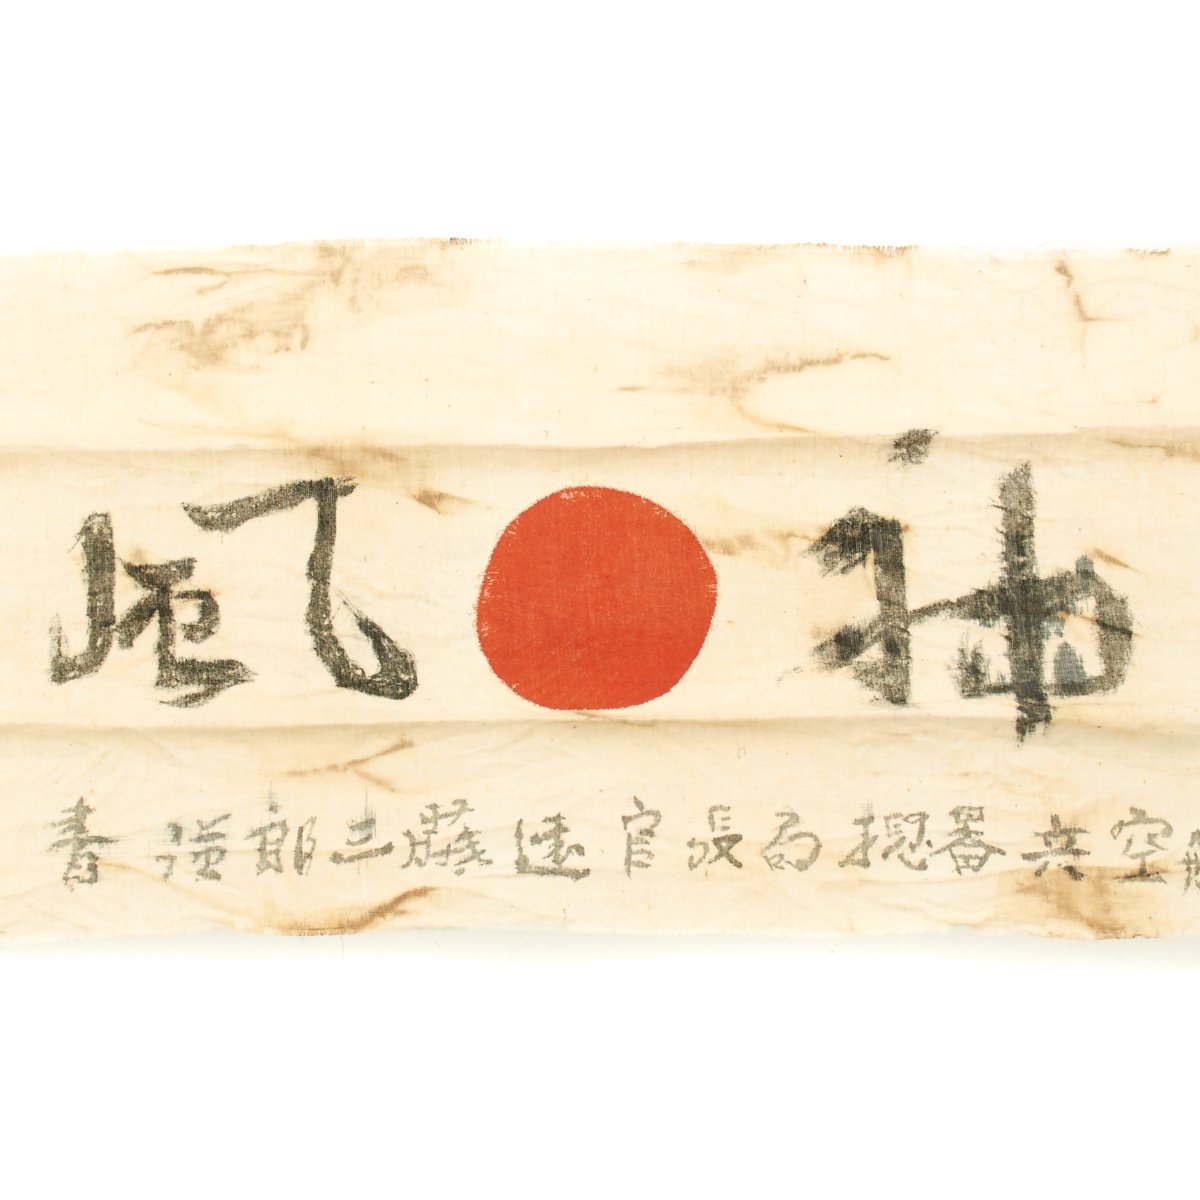 神風
空兵器総局長官遠藤三郎謹書